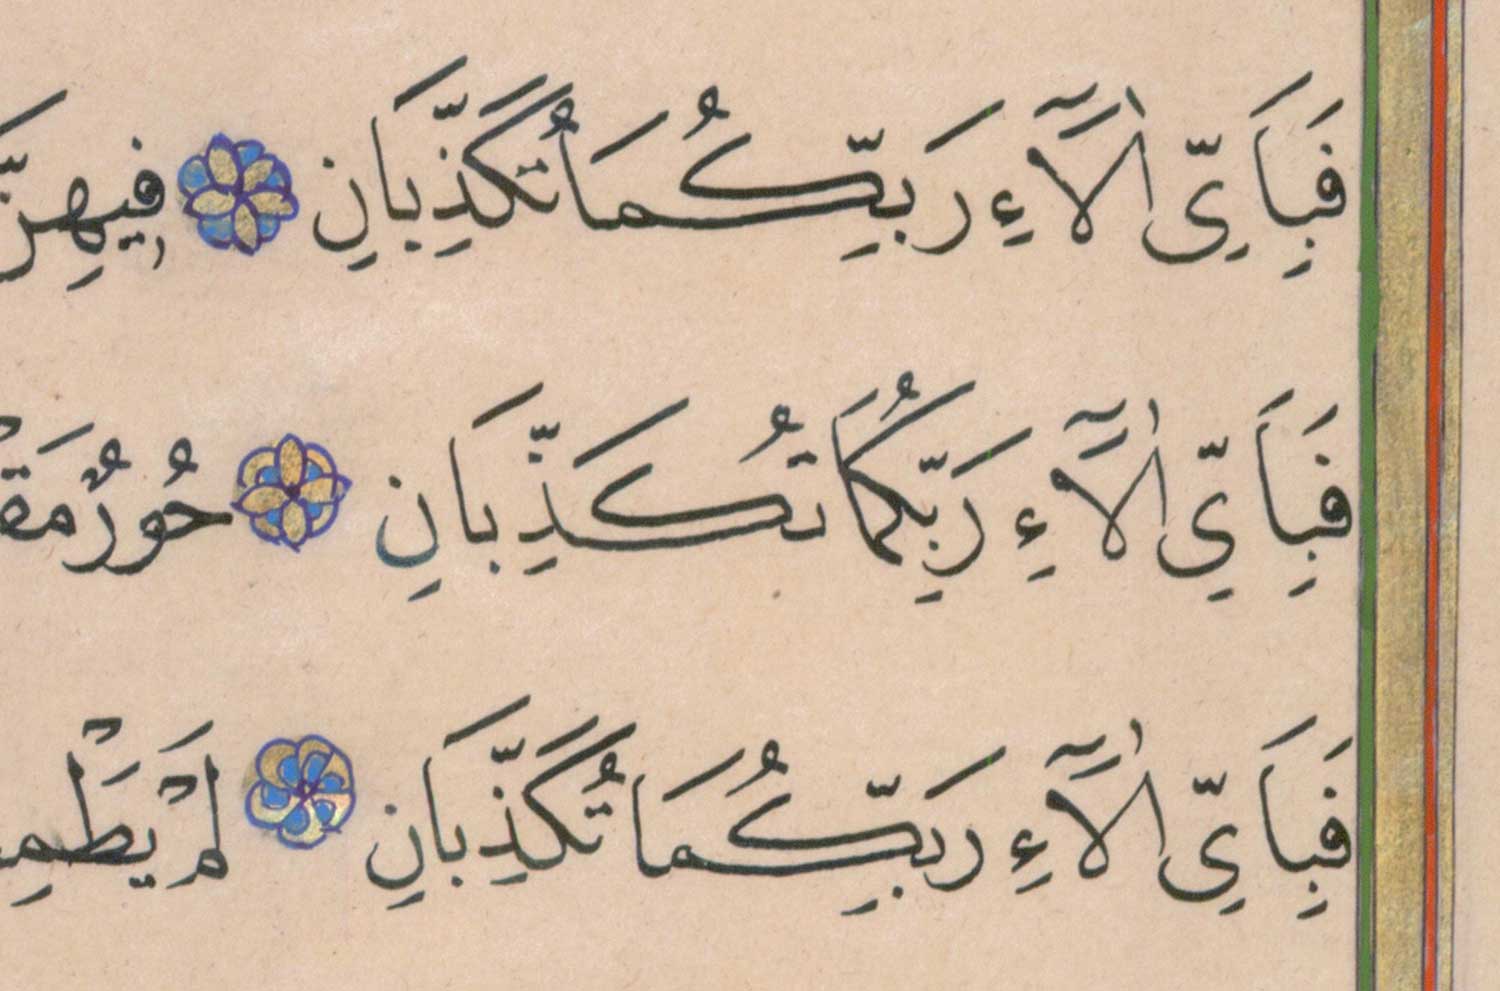 فَبِأَىِّ اٰلَآءِ رَبِّكُمَا تُكَذِّبَانِ فِيهِنَّ
فَبِأَىِّ اٰلَآءِ رَبِّكُمَا تُكَذِّبَانِ حُورٌ
فَبِأَىِّ اٰلَآءِ رَبِّكُمَا تُكَذِّبَانِ لَمْ